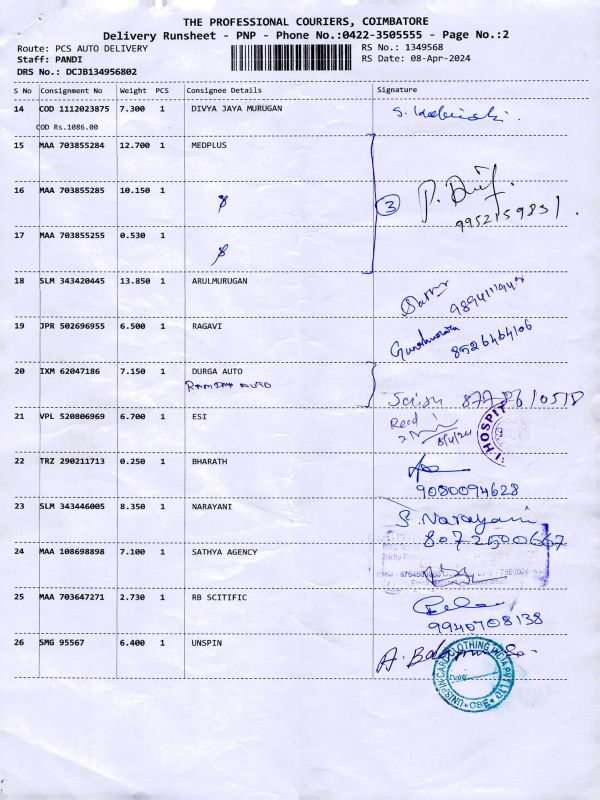 THE PROFESSIONAL COURIERS, COIMBATORE
Delivery Runsheet - PNP - Phone No.:0422-3505555 - Page No.:2
Route: PCS AUTO DELIVERY
RS No.: 1349568
Staff: PANDI
RS Date: 08-Apr-2024
DRS No.: DCJB134956802
S No Consignment No Weight PCS Consignee Details Signature
14 COD 1112023875 7.300 1 DIVYA JAYA MURUGAN
COD Rs.1086.00
15 MAA 703855284 12.700 1 MEDPLUS
16 MAA 703855285 10.150 1
3
9952159831
17 MAA 703855255 0.530 1
18 SLM 343420445 13.850 1 ARULMURUGAN
19 JPR 502696955 6.500 1 RAGAVI
8526464106
20 IXM 62047186 7.150 1 DURGA AUTO
AUTO
21 VPL 520806969 6.700 1 ESI
HOSPIT
8/4/24
22 TRZ 290211713 0.250 1 BHARATH
9080094628
23 SLM 343446005 8.350 1 NARAYANI
S. Narayani
8072500667
24 MAA 108698898 7.100 1 SATHYA AGENCY
25 MAA 703647271 2.730 1 RB SCITIFIC
9940708138
26 SMG 95567 6.400 1 UNSPIN
Date:
CBE